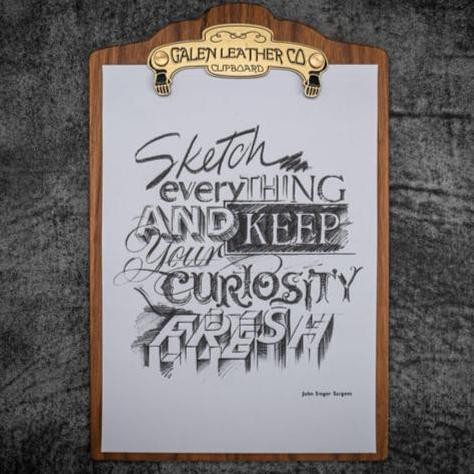 GALEN LEATHER CO
CLIPBOARD
Sketch
everyTHING
AND KEEP
Your
CURIOSITY
FRESH
John Singer Sargent